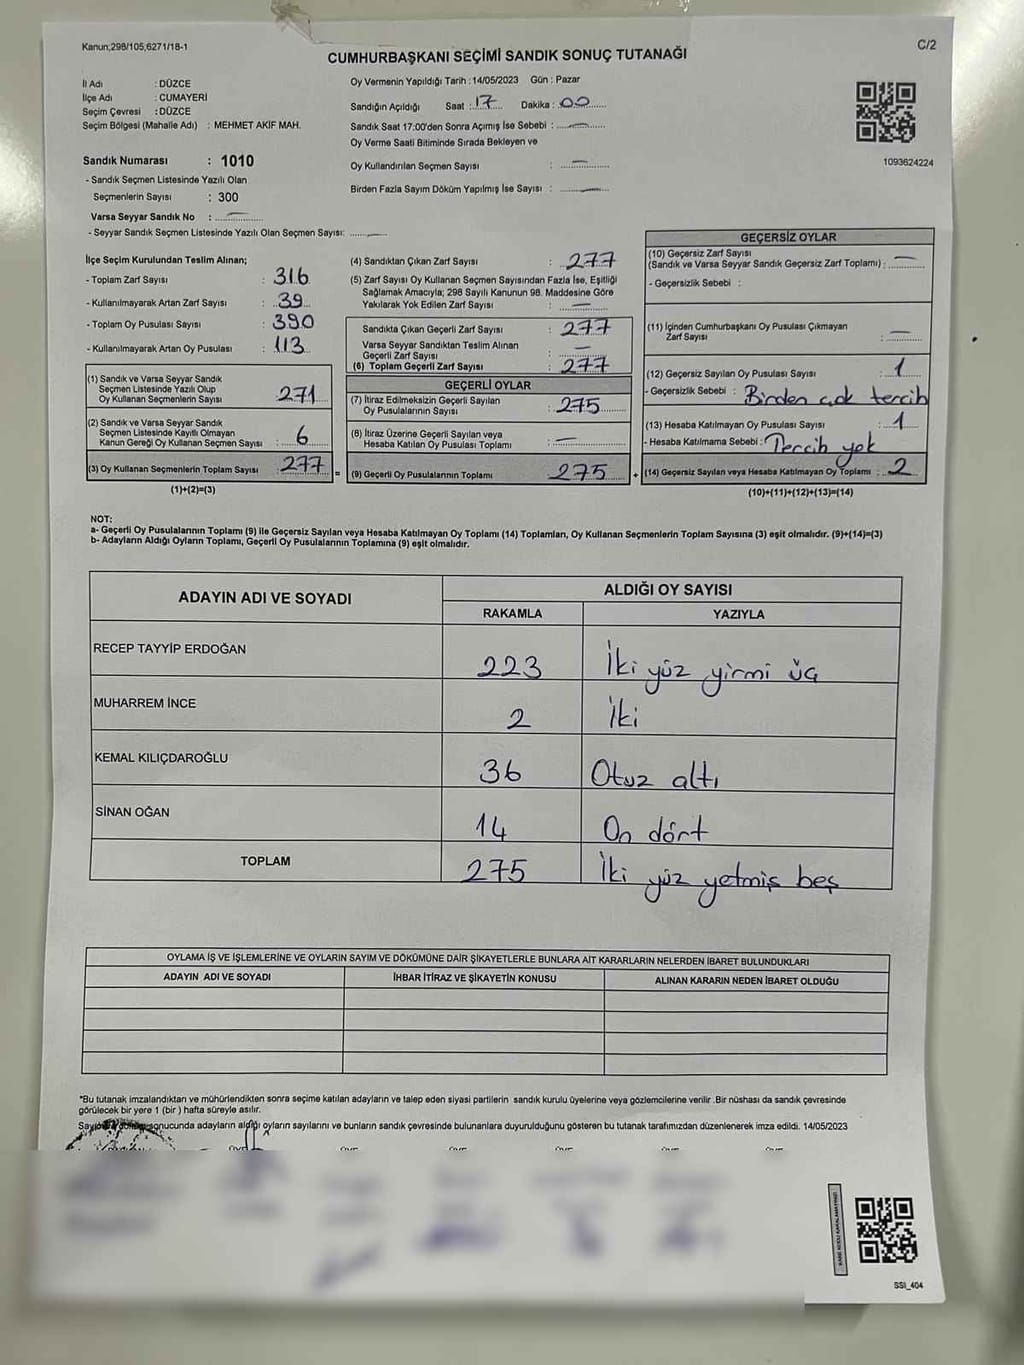 Kanun;298/105,6271/18-1
C/2
CUMHURBAŞKANI SEÇİMİ SANDIK SONUÇ TUTANAĞI
İl Adı : DÜZCE
İlçe Adı : CUMAYERİ
Seçim Çevresi : DÜZCE
Seçim Bölgesi (Mahalle Adı) : MEHMET AKİF MAH.
Sandık Numarası : 1010
- Sandık Seçmen Listesinde Yazılı Olan
Seçmenlerin Sayısı : 300
Varsa Seyyar Sandık No : —
- Seyyar Sandık Seçmen Listesinde Yazılı Olan Seçmen Sayısı: —
Oy Vermenin Yapıldığı Tarih : 14/05/2023 Gün : Pazar
Sandığın Açıldığı Saat : 17 Dakika : 00
Sandık Saat 17:00'den Sonra Açımış İse Sebebi : —
Oy Verme Saati Bitiminde Sırada Bekleyen ve
Oy Kullandırılan Seçmen Sayısı : —
Birden Fazla Sayım Döküm Yapılmış İse Sayısı : —
1093624224
İlçe Seçim Kurulundan Teslim Alınan;
- Toplam Zarf Sayısı : 316
- Kullanılmayarak Artan Zarf Sayısı : 39
- Toplam Oy Pusulası Sayısı : 390
- Kullanılmayarak Artan Oy Pusulası : 113
(1) Sandık ve Varsa Seyyar Sandık
Seçmen Listesinde Yazılı Olup
Oy Kullanan Seçmenlerin Sayısı : 271
(2) Sandık ve Varsa Seyyar Sandık
Seçmen Listesinde Kayıtlı Olmayan
Kanun Gereği Oy Kullanan Seçmen Sayısı : 6
(3) Oy Kullanan Seçmenlerin Toplam Sayısı : 277 =
(1)+(2)=(3)
(4) Sandıktan Çıkan Zarf Sayısı : 277
(5) Zarf Sayısı Oy Kullanan Seçmen Sayısından Fazla İse, Eşitliği
Sağlamak Amacıyla; 298 Sayılı Kanunun 98. Maddesine Göre
Yakılarak Yok Edilen Zarf Sayısı : —
Sandıkta Çıkan Geçerli Zarf Sayısı : 277
Varsa Seyyar Sandıktan Teslim Alınan
Geçerli Zarf Sayısı : —
(6) Toplam Geçerli Zarf Sayısı : 277
GEÇERLİ OYLAR
(7) İtiraz Edilmeksizin Geçerli Sayılan
Oy Pusulalarının Sayısı : 275
(8) İtiraz Üzerine Geçerli Sayılan veya
Hesaba Katılan Oy Pusulası Toplamı : —
(9) Geçerli Oy Pusulalarının Toplamı : 275 +
GEÇERSİZ OYLAR
(10) Geçersiz Zarf Sayısı
(Sandık ve Varsa Seyyar Sandık Geçersiz Zarf Toplamı) : —
- Geçersizlik Sebebi :
(11) İçinden Cumhurbaşkanı Oy Pusulası Çıkmayan
Zarf Sayısı : —
(12) Geçersiz Sayılan Oy Pusulası Sayısı : 1
- Geçersizlik Sebebi : Birden çok tercih
(13) Hesaba Katılmayan Oy Pusulası Sayısı : 1
- Hesaba Katılmama Sebebi : Tercih yok
(14) Geçersiz Sayılan veya Hesaba Katılmayan Oy Toplamı : 2
(10)+(11)+(12)+(13)=(14)
NOT:
a- Geçerli Oy Pusulalarının Toplamı (9) ile Geçersiz Sayılan veya Hesaba Katılmayan Oy Toplamı (14) Toplamları, Oy Kullanan Seçmenlerin Toplam Sayısına (3) eşit olmalıdır. (9)+(14)=(3)
b- Adayların Aldığı Oyların Toplamı, Geçerli Oy Pusulalarının Toplamına (9) eşit olmalıdır.
ADAYIN ADI VE SOYADI
ALDIĞI OY SAYISI
RAKAMLA YAZIYLA
RECEP TAYYİP ERDOĞAN 223 İki yüz yirmi üç
MUHARREM İNCE 2 İki
KEMAL KILIÇDAROĞLU 36 Otuz altı
SİNAN OĞAN 14 On dört
TOPLAM 275 İki yüz yetmiş beş
OYLAMA İŞ VE İŞLEMLERİNE VE OYLARIN SAYIM VE DÖKÜMÜNE DAİR ŞİKAYETLERLE BUNLARA AİT KARARLARIN NELERDEN İBARET BULUNDUKLARI
ADAYIN ADI VE SOYADI İHBAR İTİRAZ VE ŞİKAYETİN KONUSU ALINAN KARARIN NEDEN İBARET OLDUĞU
*Bu tutanak imzalandıktan ve mühürlendikten sonra seçime katılan adayların ve talep eden siyasi partilerin sandık kurulu üyelerine veya gözlemcilerine verilir .Bir nüshası da sandık çevresinde
görülecek bir yere 1 (bir ) hafta süreyle asılır.
sonucunda adayların aldığı oyların sayılarını ve bunların sandık çevresinde bulunanlara duyurulduğunu gösteren bu tutanak tarafımızdan düzenlenerek imza edildi. 14/05/2023
SSI_404